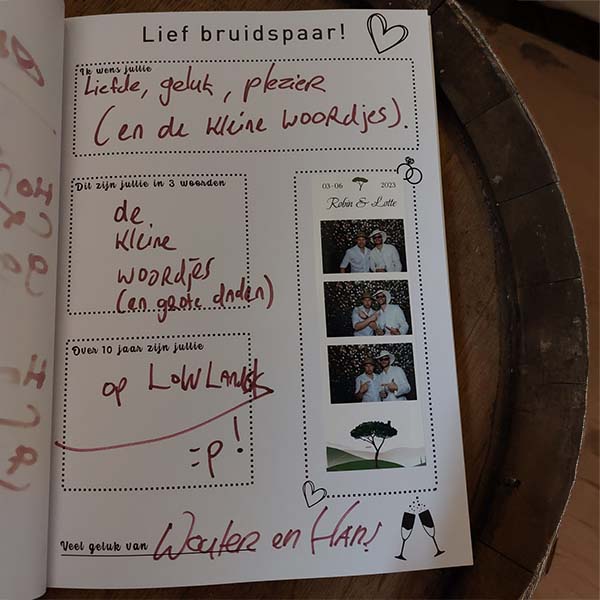 Lief bruidspaar!
Ik wens jullie
Liefde, geluk, plezier
(en de kleine woordjes).
Dit zijn jullie in 3 woorden
de
kleine
woordjes
(en grote daden)
03-06 2023
Robin & Lotte
Over 10 jaar zijn jullie
op LOWLANDS
=p!
Veel geluk van Wouter en Hans